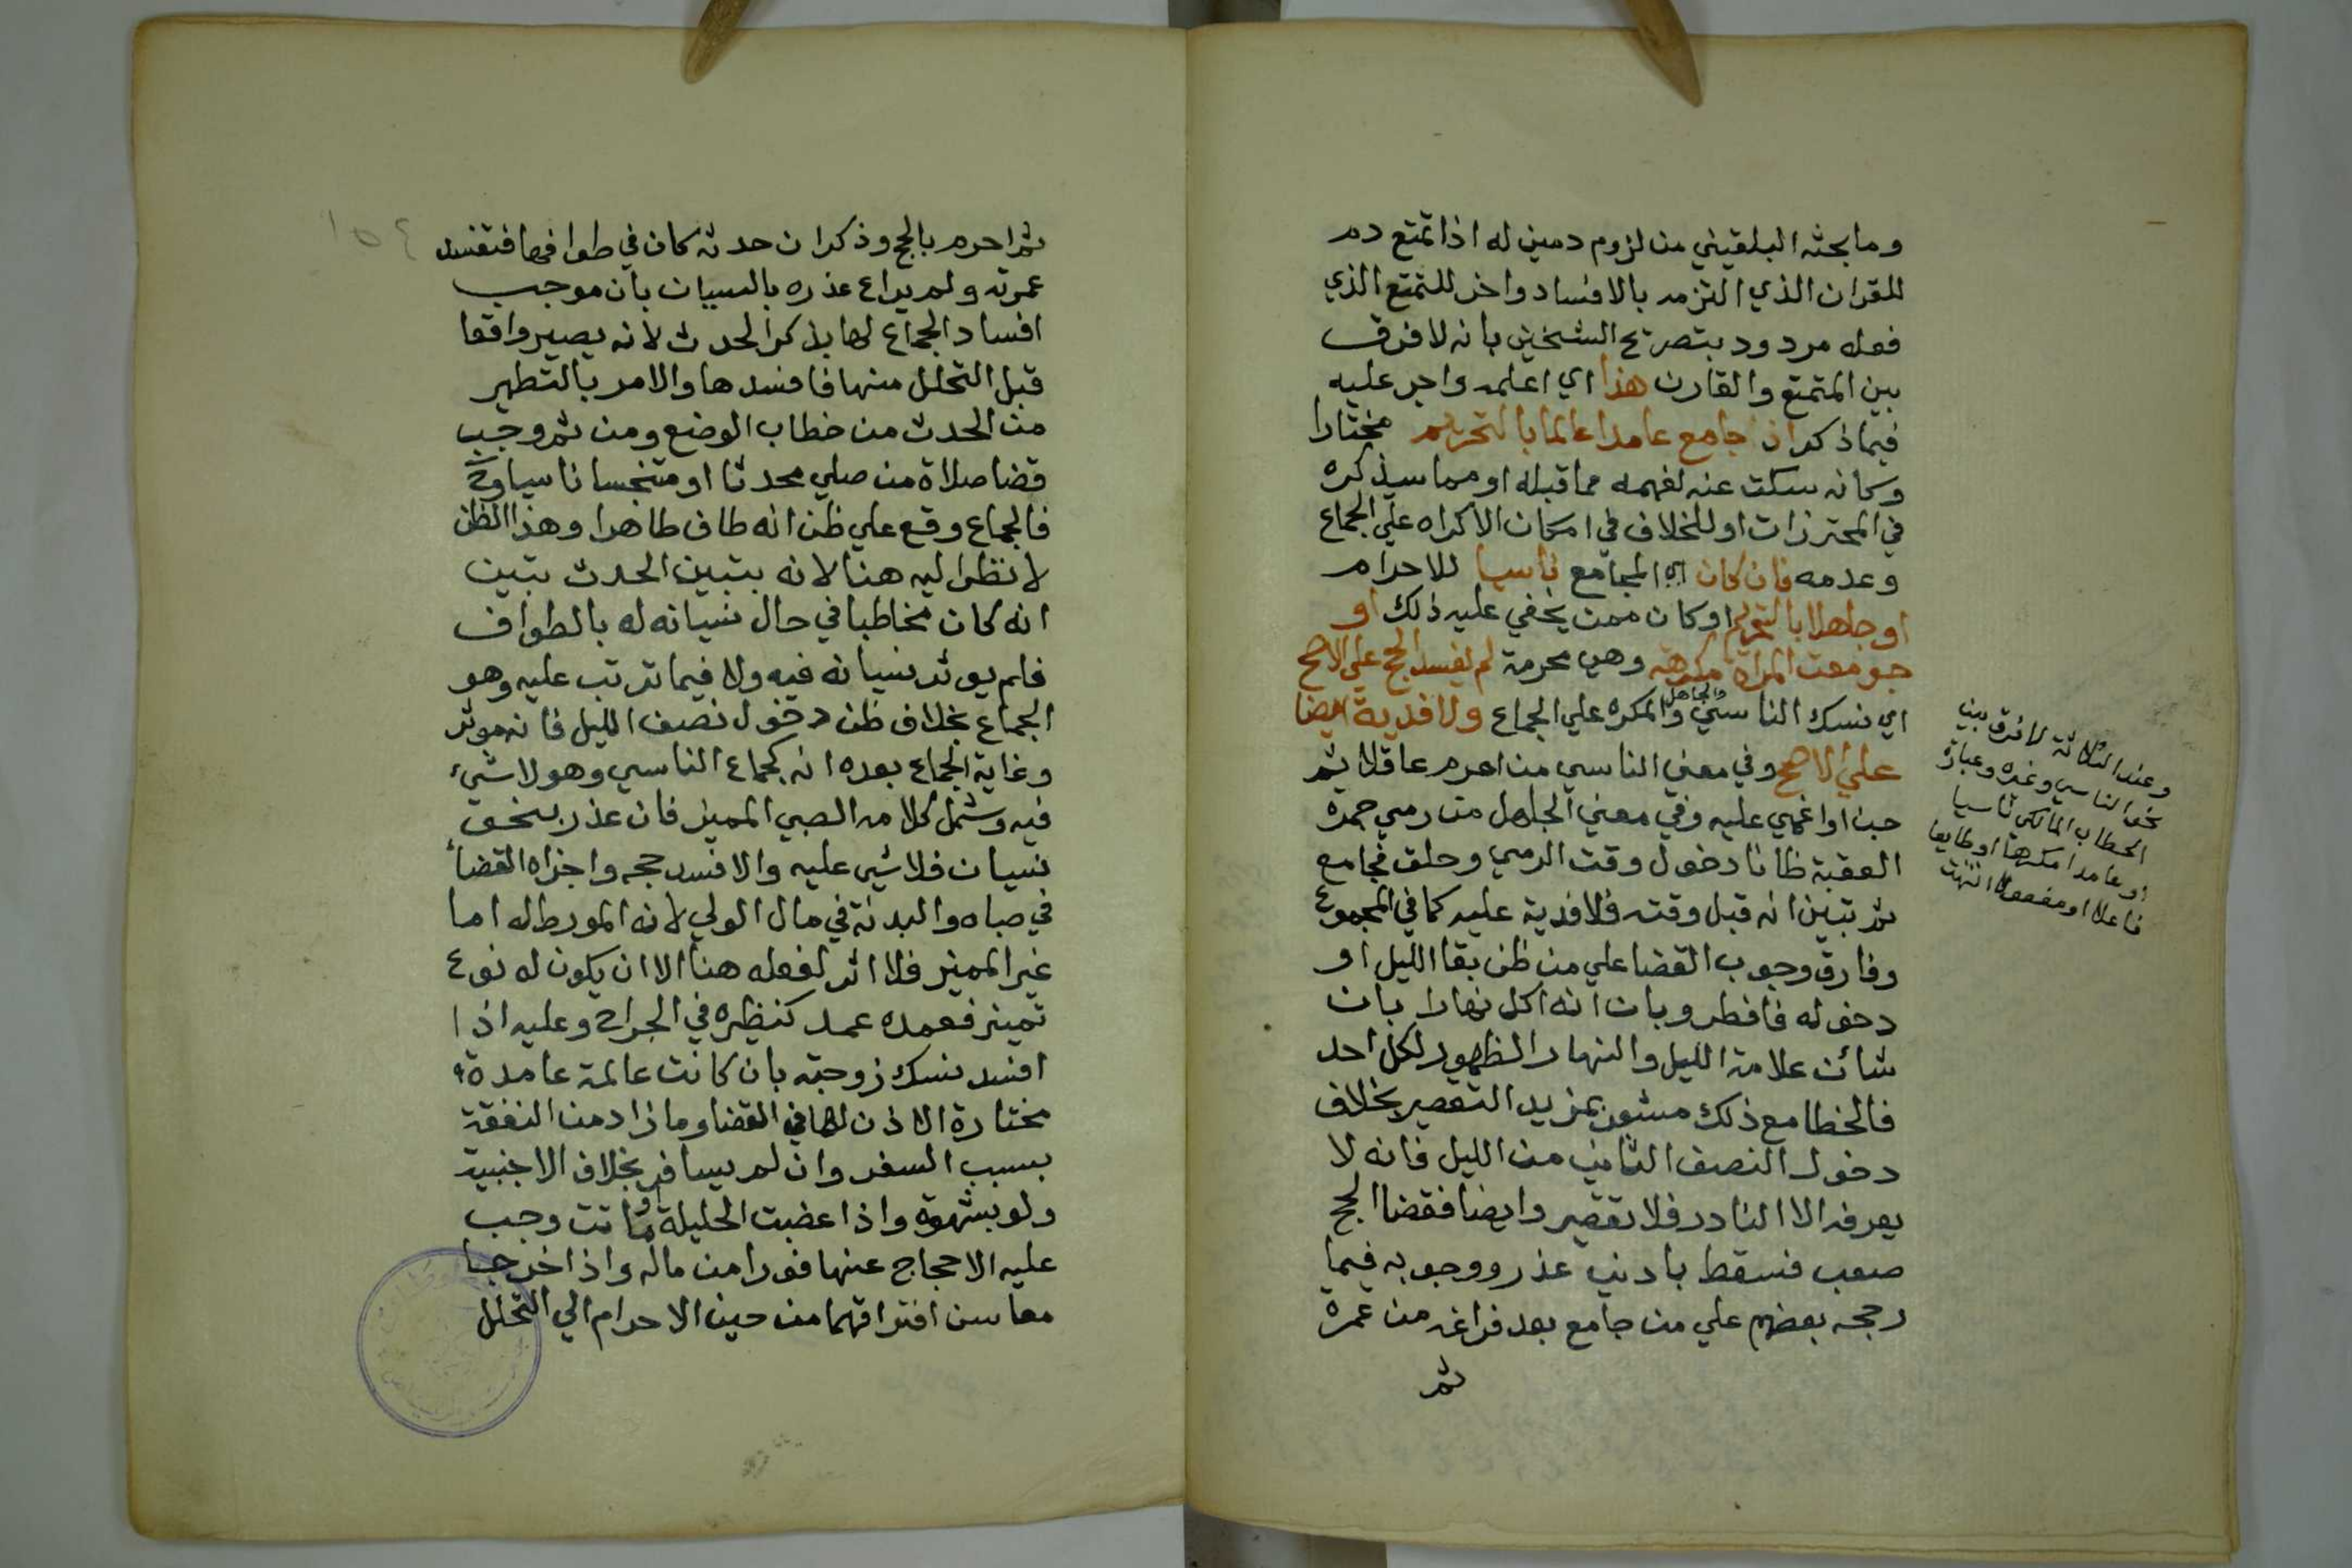 وما بحثه البلقيني من لزوم دمين له اذا تمتع دم
للقران الذي التزمه بالافساد واخر للتمتع الذي
فعله مردود بتصريح الشيخين بانه لا فرق
بين المتمتع والقارن هذا اي اعلمه واجر عليه
فيما ذكر ان جامع عامدا عالما بالتحريم مختارا
وكانه سكت عنه لفهمه مما قبله او مما سيذكره
في المحترزات او للخلاف في امكان الاكراه علي الجماع
وعدمه فان كان اي المجامع ناسيا للاحرام
او جاهلا بالتحريم او كان ممن يخفي عليه ذلك او
جومعت المراة مكرهة وهي محرمة لم يفسد الحج علي الاصح
اي نسك الناسي والجاهل والمكره علي الجماع ولا فدية ايضا
علي الاصح وفي معني الناسي من احرم عاقلا ثم
جن او اغمي عليه وفي معني الجاهل من رمي جمرة
العقبة ظانا دخول وقت الرمي وحلق فجامع
ثم تبين انه قبل وقته فلا فدية عليه كما في المجموع
وفارق وجوب القضا علي من ظن بقا الليل او
دخوله فافطر وبان انه اكل نهارا بان
شان علامة الليل والنهار الظهور لكل احد
فالخطا مع ذلك مشعر بمزيد التقصير بخلاف
دخول النصف الثاني من الليل فانه لا
يعرفه الا النادر فلا تقصير وايضا فقضا الحج
صعب فسقط بادني عذر ووجوبه فيما
رجحه بعضهم علي من جامع بعد فراغه من عمرة
ثم
وعند الثلاثة لا فرق بين
الناسي وغيره وعبارة
الحطاب المالكي ناسيا
او عامدا مكرها او طايعا
فاعلا او مفعولا انتهت
ثم احرم بالحج وذكر ان حدثه كان في طوافها فتفسد
عمرته ولم يراع عذره بالنسيان بان موجب
افساد الجماع لها بذكر الحدث لانه يصير واقعا
قبل التحلل منها فافسدها والامر بالتطهر
من الحدث من خطاب الوضع ومن ثم وجب
قضا صلاة من صلي محدثا او متنجسا ناسيا وح
فالجماع وقع علي ظن انه طاف طاهرا وهذا الظن
لا نظر اليه هنا لانه بتبين الحدث تبين
انه كان مخاطبا في حال نسيانه له بالطواف
فلم يوثر نسيانه فيه ولا فيما ترتب عليه وهو
الجماع بخلاف ظن دخول نصف الليل فانه موثر
وغاية الجماع بعده انه كجماع الناسي وهو لا شيء
فيه وشمل كلامه الصبي المميز فان عذر بنحو
نسيان فلا شي عليه والا فسد حجه واجزاه القضاء
في صباه والبدنة في مال الولي لانه المورط له اما
غير المميز فلا اثر لفعله هنا الا ان يكون له نوع
تمييز فعمده عمد كنظيره في الجراح وعليه اذا
افسد نسك زوجته بان كانت عالمة عامدة
مختارة الاذن لها في القضا وما زاد من النفقة
بسبب السفر وان لم يسافر بخلاف الاجنبية
ولو بشهوة واذا عضبت الحليلة او ماتت وجب
عليه الاحجاج عنها فورا من ماله واذا خرجا
معا سن افتراقهما من حين الاحرام الي التحلل
١٥٤